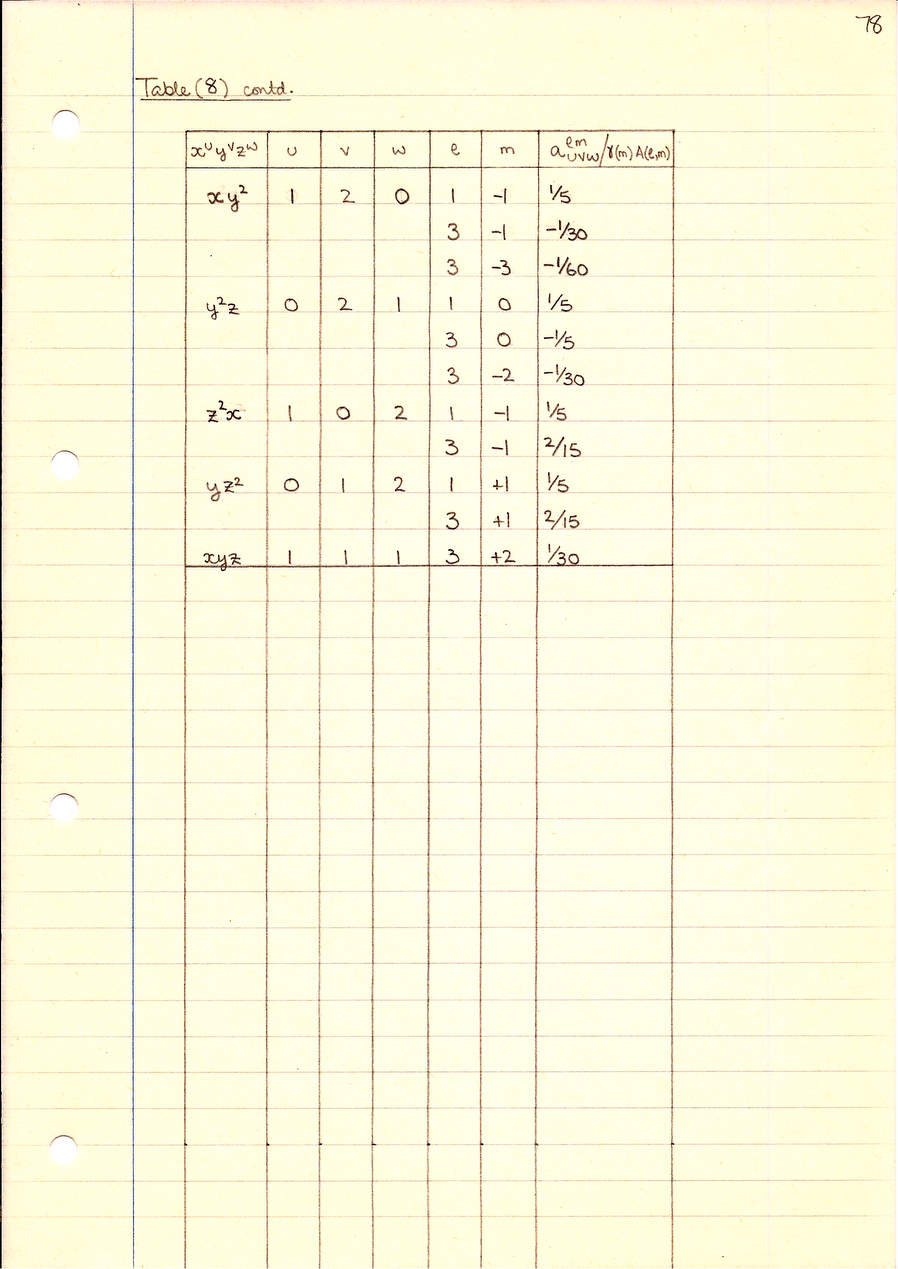 78
Table (8) contd.
xᵁyⱽzᵂ U V W ℓ m aℓm UVW/γ(m) A(ℓ,m)
xy² 1 2 0 1 -1 1/5
3 -1 -1/30
3 -3 -1/60
y²z 0 2 1 1 0 1/5
3 0 -1/5
3 -2 -1/30
z²x 1 0 2 1 -1 1/5
3 -1 2/15
yz² 0 1 2 1 +1 1/5
3 +1 2/15
xyz 1 1 1 3 +2 1/30